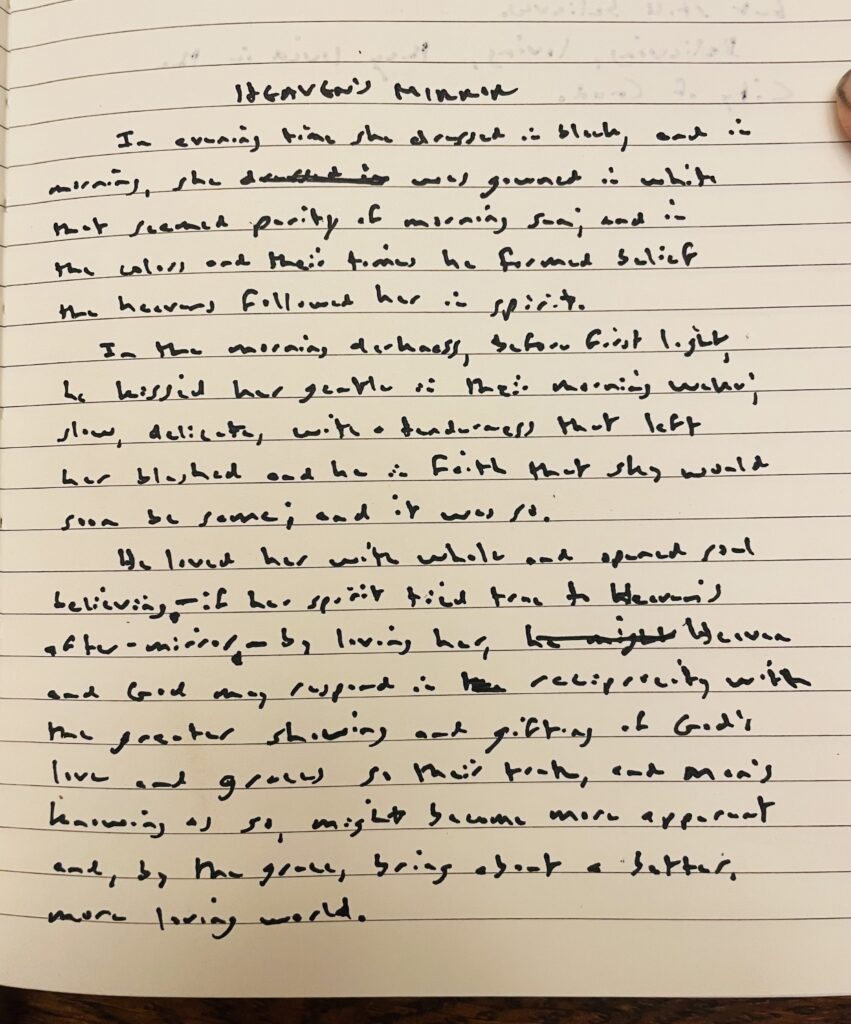 HEAVEN'S MIRROR
In evening time she dressed in black, and in
morning, she dressed in was gowned in white
that seemed purity of morning sun; and in
the colors and their times he formed belief
the heavens followed her in spirit.
In the morning darkness, before first light,
he kissed her gentle in their morning wake;
slow, delicate, with a tenderness that left
her blushed and he in faith that sky would
soon be same; and it was so.
He loved her with whole and opened soul
believing, – if her spirit tied true to Heaven's
after-mirror, – by loving her, he might Heaven
and God may respond in reciprocity with
the greater showing and gifting of God's
love and graces so their truth, and man's
knowing as so, might become more apparent
and, by the grace, bring about a better,
more loving world.